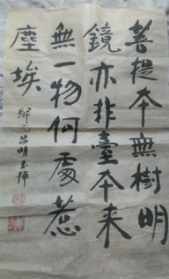 菩提本無樹明
鏡亦非臺本来
無一物何處惹
塵埃